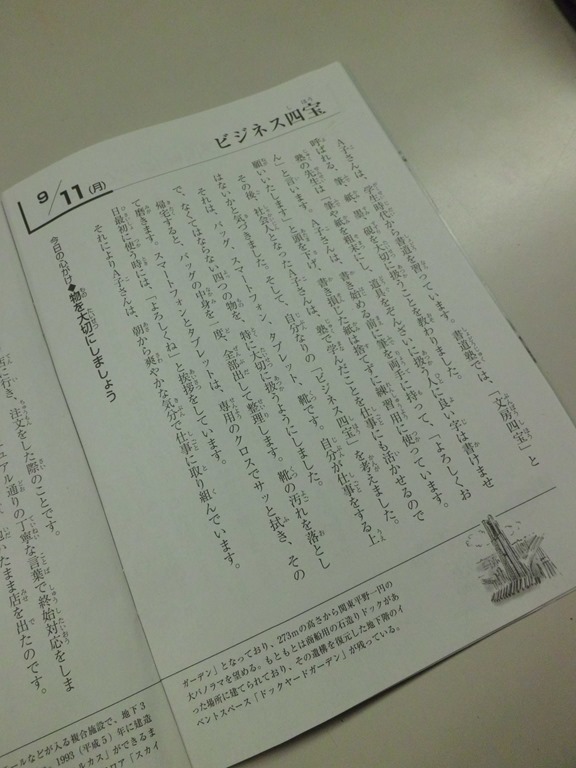 ビジネス四宝
9/11(月)
A子さんは、学生時代から書道を習っています。書道塾では、「文房四宝」と
呼ばれる、筆、紙、墨、硯を大切に扱うことを教わりました。
塾の先生は、「筆や紙を粗末にし、道具をぞんざいに扱う人に良い字は書けませ
ん」と言います。A子さんは、書き始める前に筆を両手に持って、「よろしくお
願いいたします」と頭を下げ、書き損じた紙は捨てずに練習用に使っています。
その後、社会人となったA子さんは、塾で学んだことを仕事にも活かせるので
はないかと気づきました。そして、自分なりの「ビジネス四宝」を考えました。
それは、バッグ、スマートフォン、タブレット、靴です。自分が仕事をする上
で、なくてはならない四つの物を、特に大切に扱うようにしました。
帰宅すると、バッグの中身を一度、全部出して整理します。靴の汚れを落とし
て磨きます。スマートフォンとタブレットは、専用のクロスでサッと拭き、その
日最初に使う時には、「よろしくね」と挨拶をしています。
それによりA子さんは、朝から爽やかな気分で仕事に取り組んでいます。
今日の心がけ◆物を大切にしましょう
ガーデン」となっており、273mの高さから関東平野一円の
大パノラマを望める。もともとは商船用の石造りドックがあ
った場所に建てられており、その遺構を復元した地下階のイ
ベントスペース「ドックヤードガーデン」が残っている。
に行き、注文をした際のことです。
ュアル通りの丁寧な言葉で終始対応をしま
たまま店を出たのです。
ールなどが入る複合施設で、地下3
1993(平成5)年に建造
ルカス」ができるま
ロア「スカイ